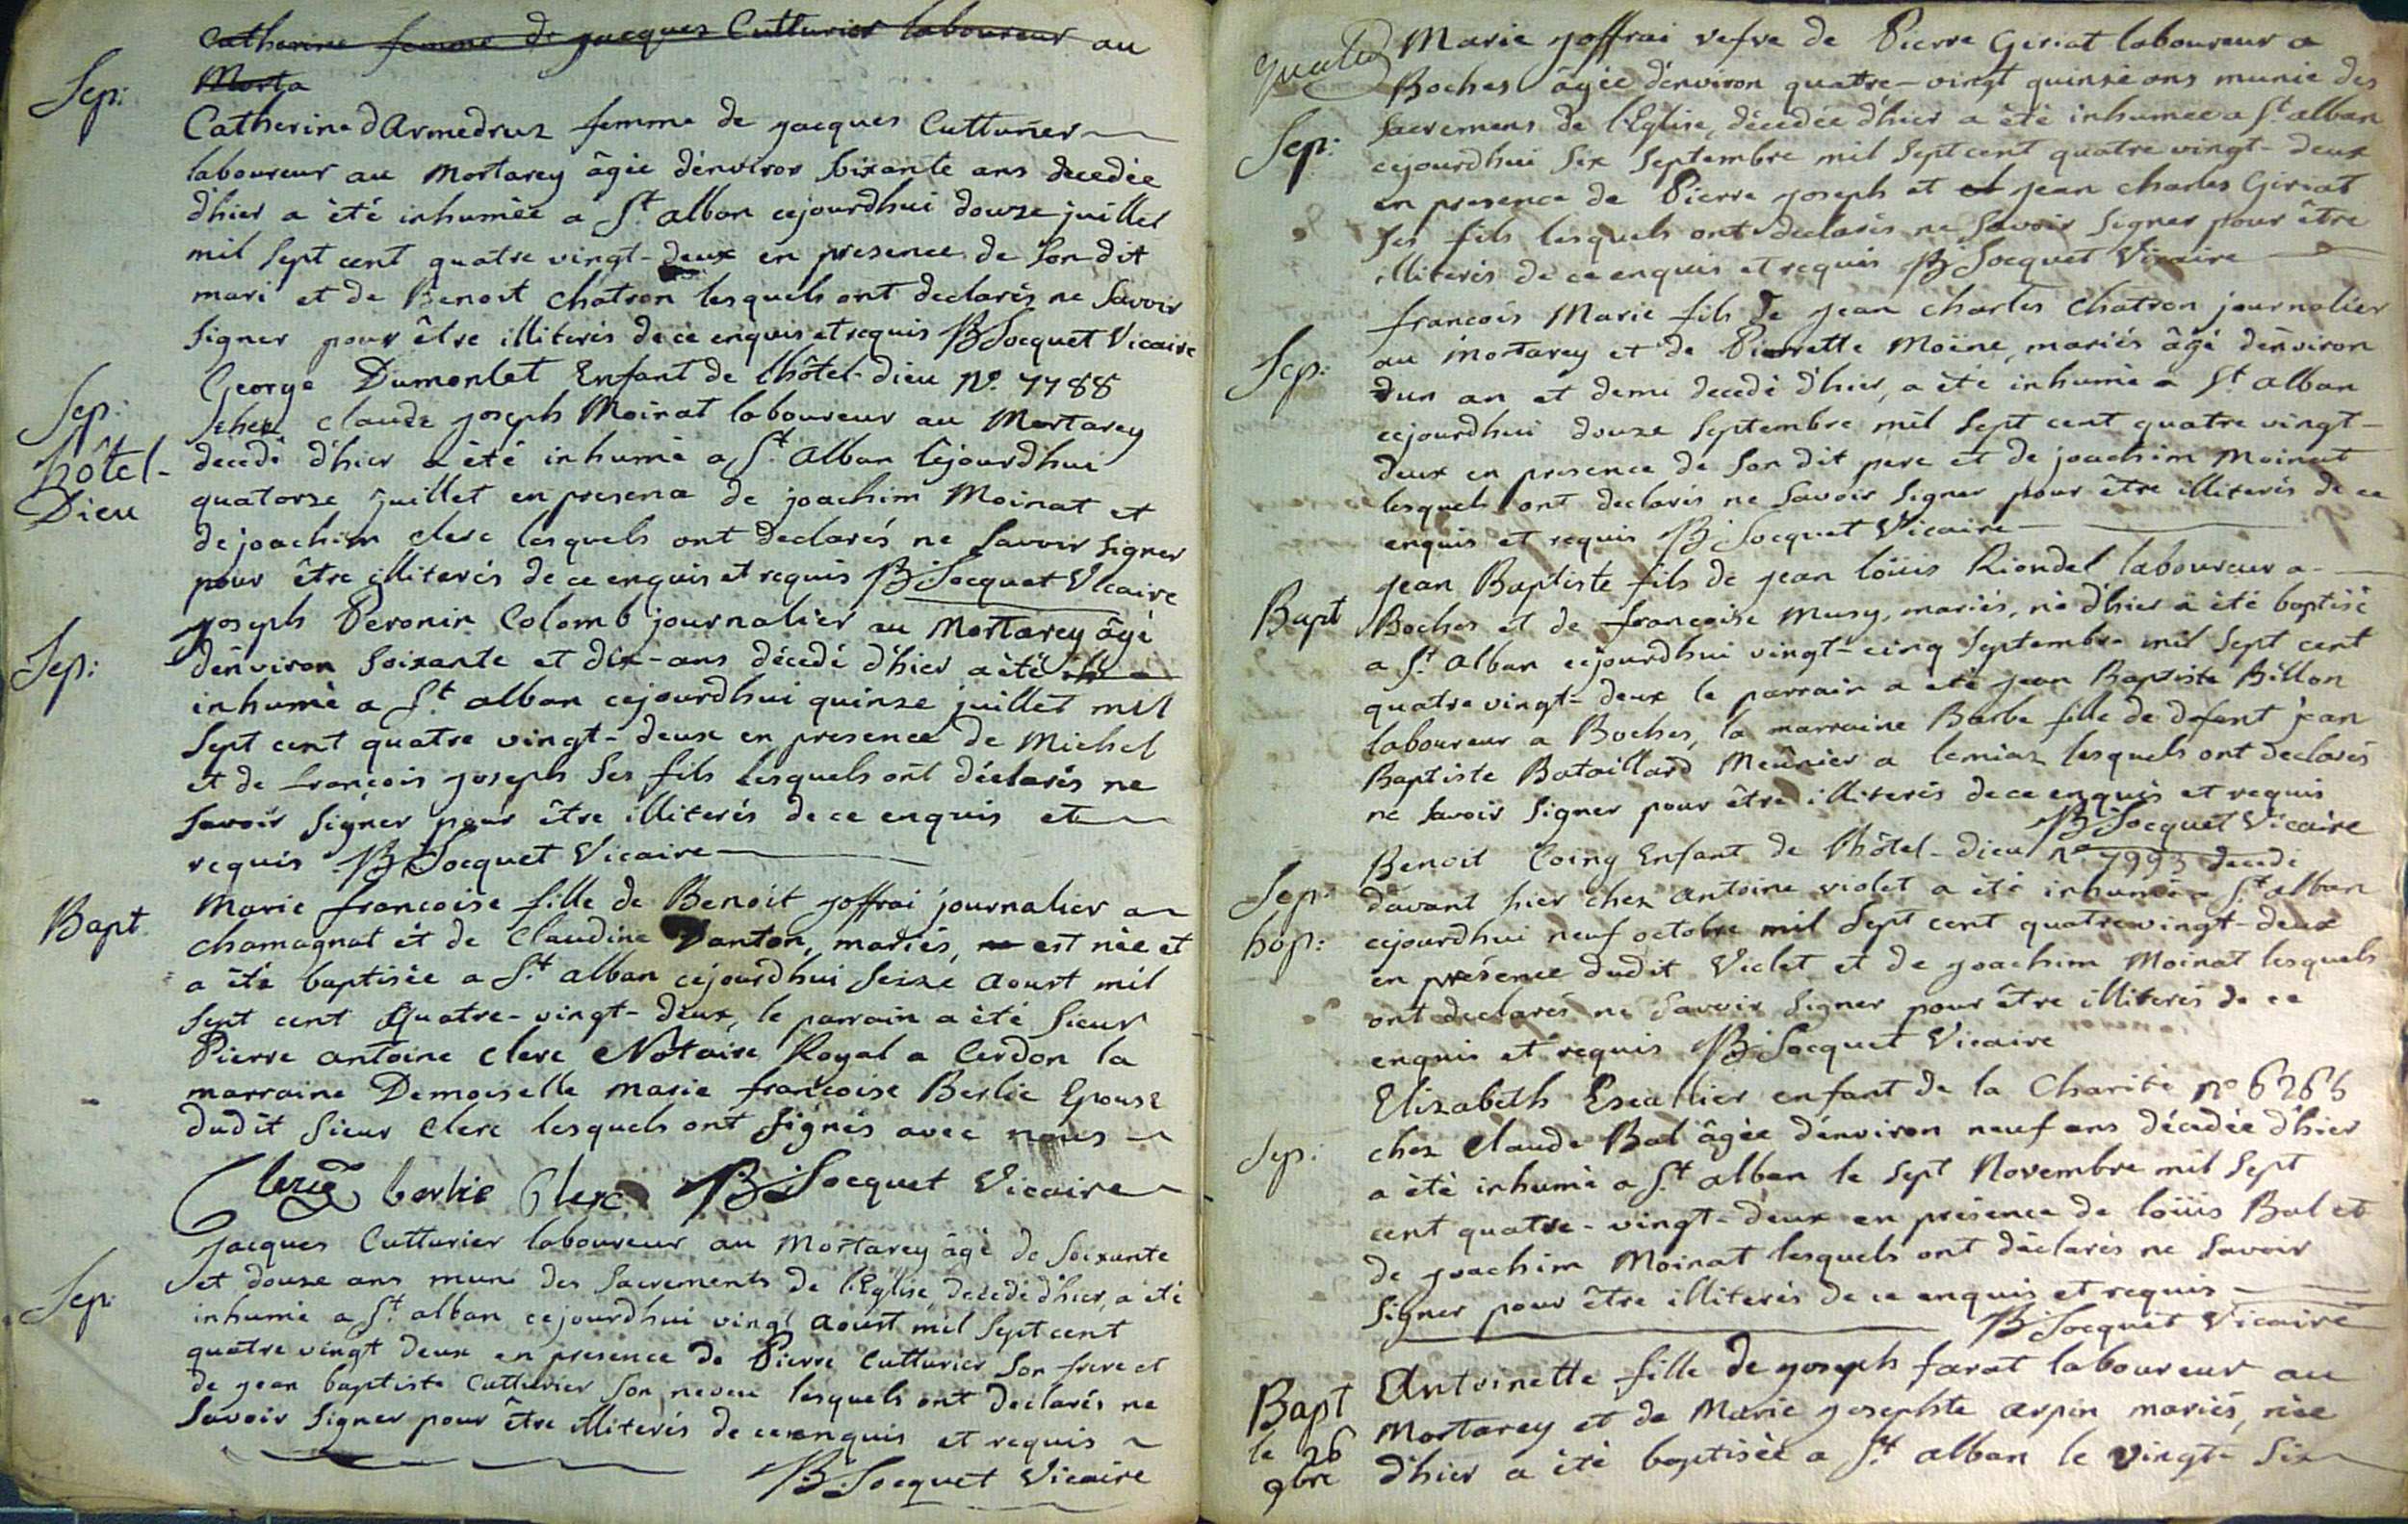 Catherine femme de jacques Cutturier laboureur au
Morta
Sep:
Catherine d'armedruz femme de jacques Cutturier
laboureur au Mortarey âgée d'environ soixante ans decedée
d'hier a été inhumée a St alban cejourdhui douze juillet
mil sept cent quatre vingt-deux en presence de son dit
mari et de Benoit Chatron lesquels ont declarés ne savoir
signer pour être illiterés de ce enquis et requis B Socquet Vicaire
Sep:
hôtel-
Dieu
George Dumonlet Enfant de l'hôtel-dieu No. 7788
chez claude joseph Moinat laboureur au Mortarey
decedé d'hier a été inhumé a St Alban cejourdhui
quatorze juillet en presence de joachim Moinat et
de joachim clerc lesquels ont declarés ne savoir signer
pour être illiterés de ce enquis et requis B: Socquet Vicaire
Sep:
joseph Peronin Colomb journalier au Mortarey âgé
d'environ soixante et dix-ans décedé d'hier a été
inhumé a St alban cejourdhui quinze juillet mil
sept cent quatre vingt-deux en presence de Michel
et de françois joseph ses fils lesquels ont déclarés ne
savoir signer pour être illiterés de ce enquis et
requis B Socquet Vicaire
Bapt.
Marie francoise fille de Benoit joffrai journalier a
chamagnat et de Claudine Vanton, mariés, est née et
a été baptisée a St alban cejourdhui seize aoust mil
sept cent quatre-vingt-deux, le parrain a été sieur
Pierre antoine clerc Notaire Royal a Cerdon la
marraine Demoiselle marie françoise Berlie Epouse
dudit sieur clerc lesquels ont signés avec nous
Clerc berlie Clerc B Socquet Vicaire
Sep:
jacques Cutturier laboureur au Mortarey âgé de soixante
et douze ans muni des sacrements de l'Eglise decedé d'hier, a été
inhumé a St. alban cejourdhui vingt aoust mil sept cent
quatre vingt deux en presence de Pierre Cutturier son frere et
de jean baptiste Cutturier son neveu lesquels ont declarés ne
savoir signer pour être illiterés de ce enquis et requis
B Socquet Vicaire
Marie joffrai vefve de Pierre Giriat laboureur a
Boches âgée d'environ quatre-vingt quinze ans munie des
Sep:
sacremens de l'Eglise, décedée d'hier a été inhumée a St alban
cejourdhui six septembre mil sept cent quatre vingt-deux
en presence de Pierre joseph et et jean charles Giriat
ses fils lesquels ont declarés ne savoir signer pour être
illiterés de ce enquis et requis B Socquet Vicaire
Sep:
francois Marie fils de jean charles Chatron journalier
au mortarey et de Pierrette Moine, mariés âgé d'environ
d'un an et demi decedé d'hier, a été inhumé a St alban
cejourdhui douze septembre mil sept cent quatre vingt-
deux en presence de son dit pere et de joachim Moinat
lesquels ont declarés ne savoir signer pour être illiterés de ce
enquis et requis B Socquet Vicaire
Bapt
jean Baptiste fils de jean loüis Riondel laboureur a
Boches et de françoise Musy, mariés, né d'hier a été baptisé
a St. alban cejourdhui vingt-cinq septembre mil sept cent
quatre vingt-deux le parrain a été jean Baptiste Billon
laboureur a Boches, la marraine Barbe fille de defent jean
Baptiste Bataillard Meûnier a lemiaz lesquels ont declarés
ne savoir signer pour être illiterés de ce enquis et requis
B Socquet Vicaire
Sep:
hop:
Benoit Coing Enfant de l'hôtel-dieu no 7993 decedé
d'avant hier chez antoine violet a été inhumé a St alban
cejourdhui neuf octobre mil sept cent quatre vingt-deux
en présence dudit Violet et de joachim Moinat lesquels
ont declarés ne savoir signer pour être illiterés de ce
enquis et requis B Socquet Vicaire
Sep:
Elizabeth Escallier enfant de la Charité no 6265
chez Claude Bal âgée d'environ neuf ans décedée d'hier
a été inhumé a St alban le sept Novembre mil sept
cent quatre-vingt-deux en présence de loüis Bal et
de joachim Moinat lesquels ont déclarés ne savoir
signer pour être illiterés de ce enquis et requis
B Socquet Vicaire
Bapt
le 26
9bre
Antoinette fille de joseph farat laboureur au
Mortarey et de Marie josephte arpin mariés, née
d'hier a été baptisée a St alban le vingt-six